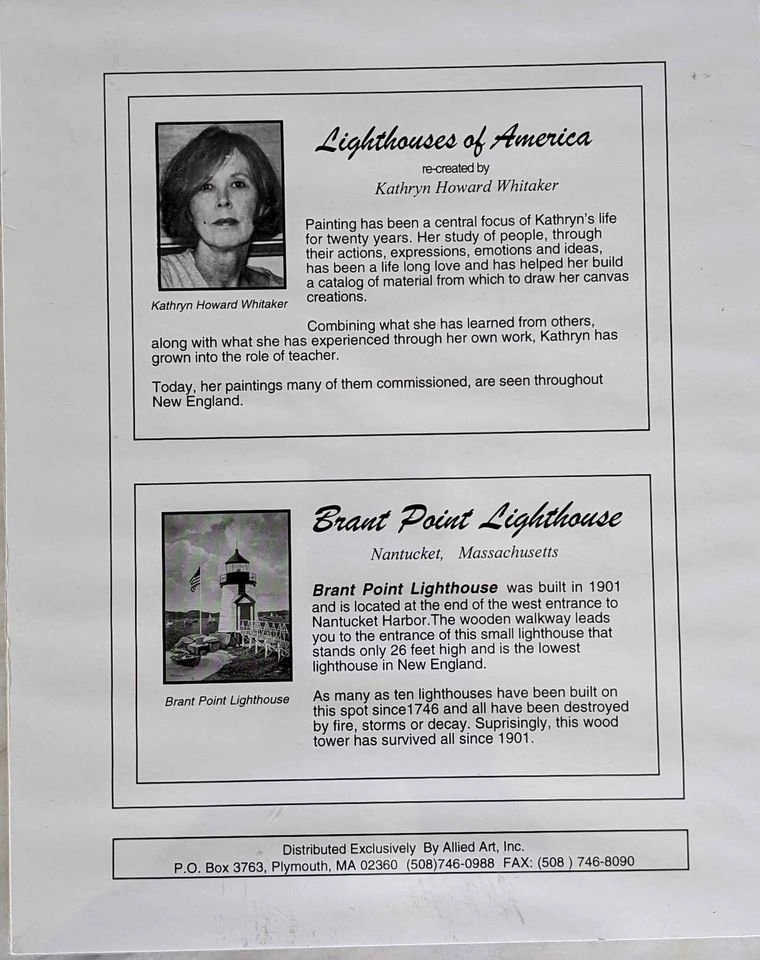 Lighthouses of America
re-created by
Kathryn Howard Whitaker
Painting has been a central focus of Kathryn's life
for twenty years. Her study of people, through
their actions, expressions, emotions and ideas,
has been a life long love and has helped her build
a catalog of material from which to draw her canvas
creations.
Kathryn Howard Whitaker
Combining what she has learned from others,
along with what she has experienced through her own work, Kathryn has
grown into the role of teacher.
Today, her paintings many of them commissioned, are seen throughout
New England.
Brant Point Lighthouse
Nantucket, Massachusetts
Brant Point Lighthouse was built in 1901
and is located at the end of the west entrance to
Nantucket Harbor.The wooden walkway leads
you to the entrance of this small lighthouse that
stands only 26 feet high and is the lowest
lighthouse in New England.
Brant Point Lighthouse
As many as ten lighthouses have been built on
this spot since1746 and all have been destroyed
by fire, storms or decay. Suprisingly, this wood
tower has survived all since 1901.
Distributed Exclusively By Allied Art, Inc.
P.O. Box 3763, Plymouth, MA 02360 (508)746-0988 FAX: (508 ) 746-8090